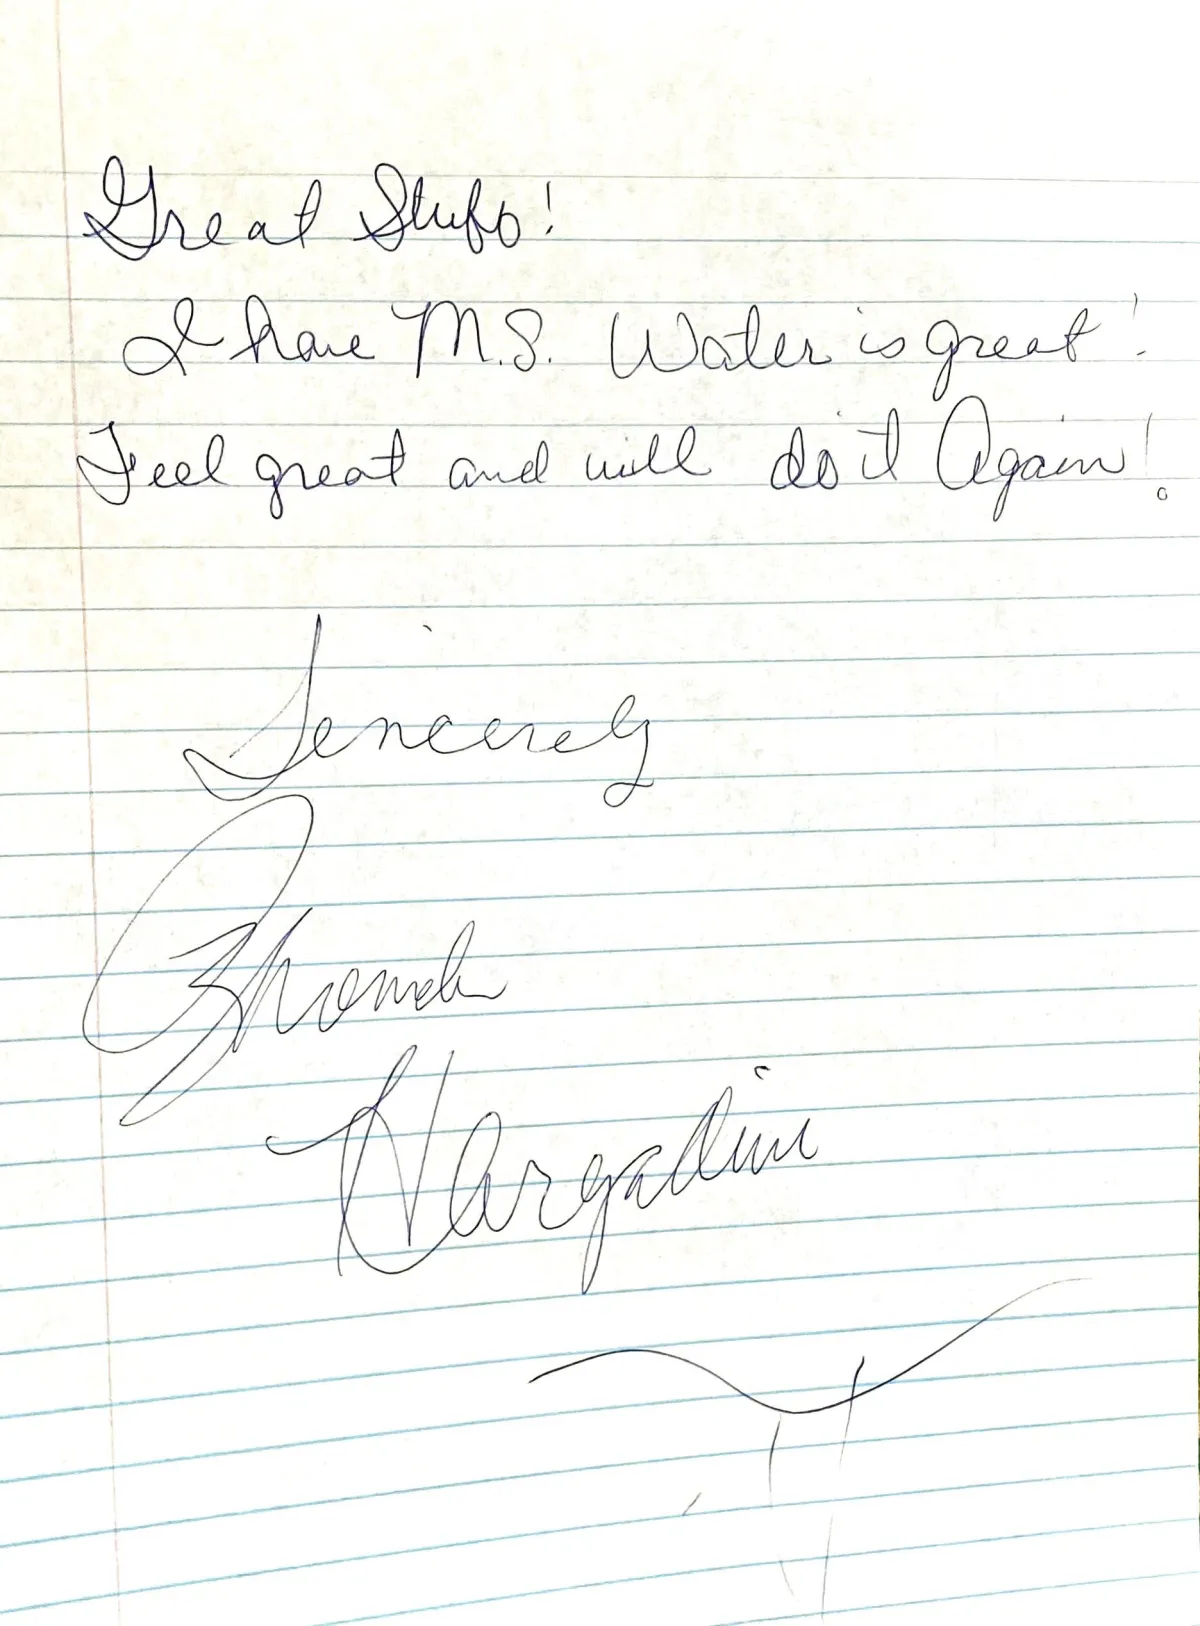 Great Stuff!
I have M.S. Water is great!
Feel great and will do it Again!
Sincerely
Rhonda
Hargadine